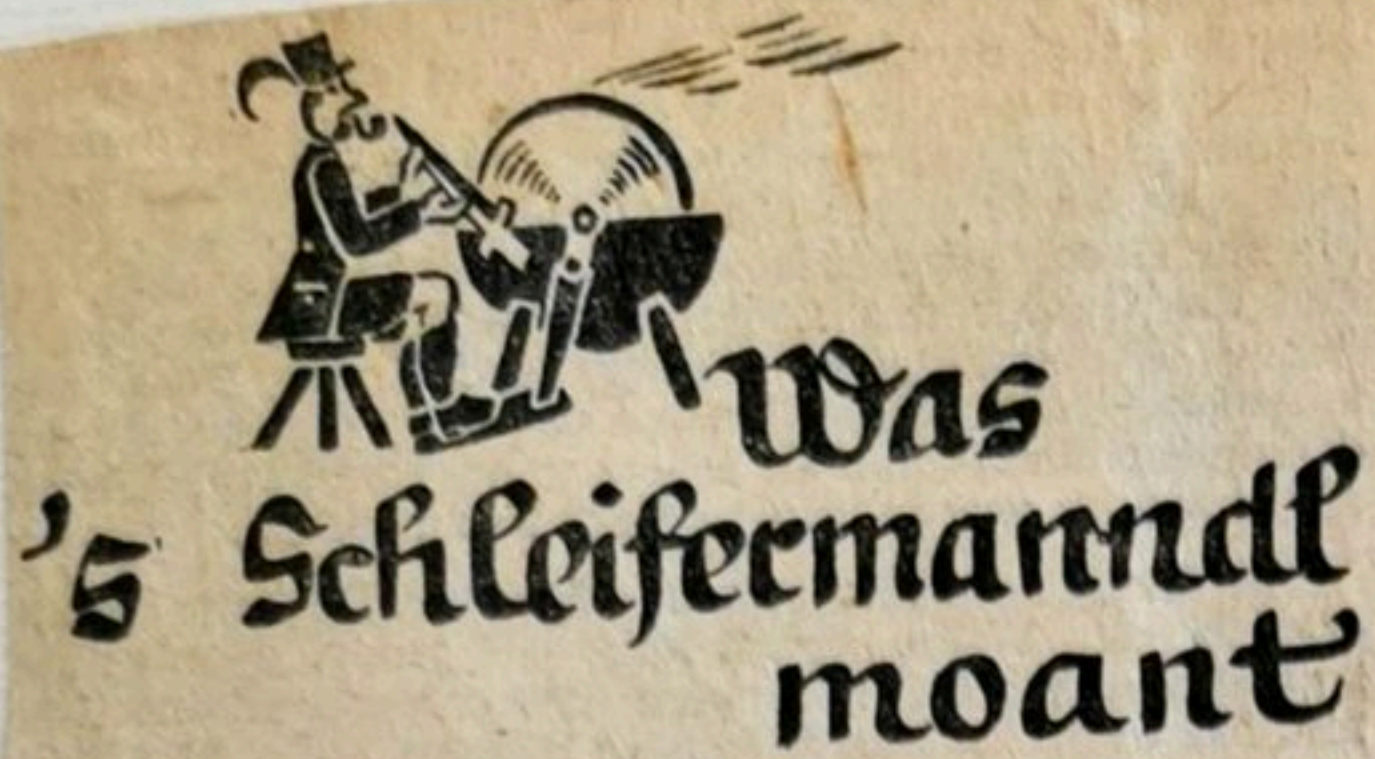 Was
's Schleifermanndl
moant